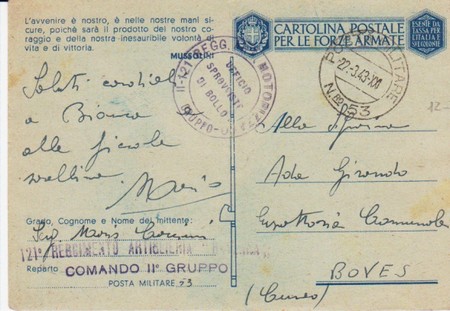 L'avvenire è nostro, è nelle nostre mani si-
cure, poichè sarà il prodotto del nostro co-
raggio e della nostra inesauribile volontà di
vita e di vittoria.
MUSSOLINI
Saluti cordiali
a Bianca
alle piccole
Mario
Grado, Cognome e Nome del mittente:
Mario
121° REGGIMENTO ARTIGLIERIA
Reparto
COMANDO II° GRUPPO
POSTA MILITARE 53
121 REGG. MOTORIZZATA
II GRUPPO
UFFICIO
SPROVVISTO
DI BOLLO
CARTOLINA POSTALE
PER LE FORZE ARMATE
ESENTE DA
TASSA PER
L'ITALIA E
SUE COLONIE
POSTA MILITARE
22.3.43
N. 53
12-
Alla Signora
Ada
Comunale
BOVES
(Cuneo)